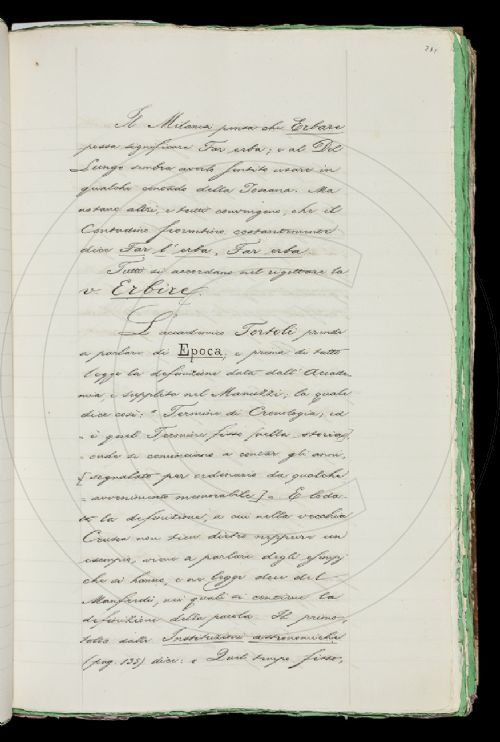 Il Milanesi pensa che Erbare
possa significare Far erba; e al Del
Lungo sembra averlo sentito usare in
qualche contado della Toscana. Ma
notano altri, e tutti convengono, che il
Contadino fiorentino costantemente
dice Far l'erba, Far erba.
Tutti si accordano nel rigettare la
v. Erbire.
L'accademico Tortoli prende
a parlare di Epoca, e prima di tutto
legge la definizione data dall'Accade-
mia e supplita nel Manuzzi; la quale
dice così: " Termine di Cronologia; ed
è quel Termine fisso nella storia,
onde si cominciano a contar gli anni,
[segnalato per ordinario da qualche
avvenimento memorabile] " E loda-
ta la definizione, a cui nella vecchia
Crusca non tien dietro neppure un
esempio, viene a parlare degli esempj
che si hanno, e ne legge due del
Manfredi, nei quali si contiene la
definizione della parola. Il primo,
tolto dalle Instituzioni astronomiche
(pag. 135) dice: " Quel tempo fisso,